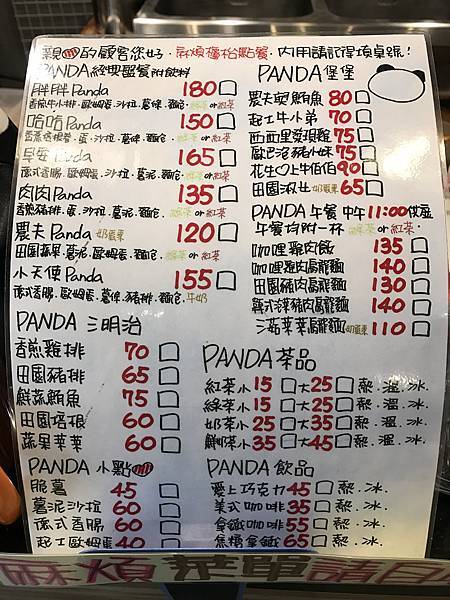 親的顧客您好．麻煩檯給點餐，內用請記得填桌號！
PANDA經典盤餐附飲料
胖胖Panda 180
香煎牛小排．歐姆蛋．沙拉．薯條．麵包．綠茶or紅茶
哈哈Panda 150
蛋．沙拉．薯條．麵包．綠茶or紅茶
早安Panda 165
德式香腸．歐姆蛋．沙拉．薯泥．麵包．綠茶or紅茶
肉肉Panda 135
香煎豬排．蛋．沙拉．薯泥．麵包．綠茶or紅茶
農夫Panda 奶蛋素 120
田園蔬果．薯泥．歐姆蛋．麵包．綠茶or紅茶
小天使Panda 155
德式香腸．歐姆蛋．薯條．豬排．麵包．牛奶
PANDA 三明治
香煎雞排 70
田園豬排 65
鮮蔬鮪魚 75
田園培根 60
蔬果莱莱 60
PANDA 小點
脆薯 45
薯泥沙拉 60
德式香腸 60
起士歐姆蛋 40
PANDA堡堡
農夫與鮪魚 80
起士牛小弟 70
西西里發現雞 75
歐巴沒豬小妹 75
花生♡上牛佰佰 90
田園淑女 奶蛋素 65
PANDA 午餐 中午11:00供應
午餐均附一杯 綠茶or紅茶
咖哩雞肉飯 135
咖哩雞肉烏龍麵 140
田園豬肉烏龍麵 130
韓式洋豬肉烏龍麵 140
三菇莱莱烏龍麵 奶蛋素 110
PANDA茶品
紅茶 小15 大25 熱．溫．冰
綠茶 小15 大25 熱．溫．冰
奶茶 小25 大35 熱．溫．冰
鮮奶茶 小35 大45 熱．溫．冰
PANDA飲品
愛上巧克力 45 熱．冰
美式咖啡 35 熱．冰
拿鐵咖啡 55 熱．冰
焦糖拿鐵 65 熱．冰
麻煩菜單請